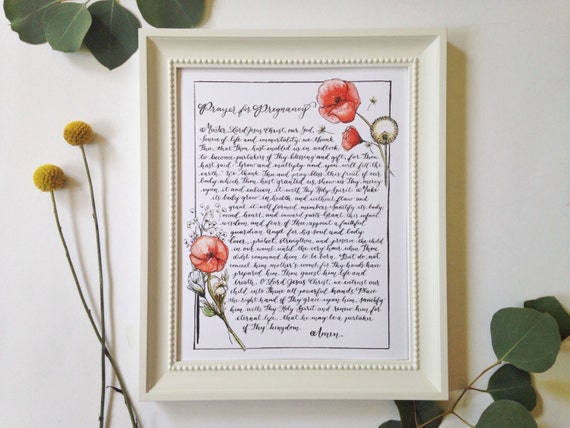 Prayer for Pregnancy
O Master, Lord Jesus Christ, our God,
Source of life and immortality, we thank
Thee, that Thou hast enabled us in wedlock
to become partakers of Thy blessing and gift, for Thou
hast said: Grow and multiply and you will fill the
earth. We thank Thee and pray: bless this fruit of our
body which Thou hast granted us, show us Thy mercy
upon it and enliven it with Thy Holy Spirit. Make
its body grow in health and without flaw and
grant it well formed members. Sanctify its body,
mind, heart, and inward parts. Grant this infant
wisdom, and fear of Thee, appoint a faithful
guardian Angel for his soul and body
protect, strengthen, and preserve the child
in our womb until the very hour when Thou
didst command him to be born. But do not
conceal him mother's womb, Thy hands have
prepared him, Thou gavest him life and
breath. O Lord Jesus Christ, we entrust our
child into Thine all powerful hands. Place
the right hand of Thy grace upon him, sanctify
him with Thy Holy Spirit and renew him for
eternal life, that he may be a partaker
of Thy kingdom.
Amen.